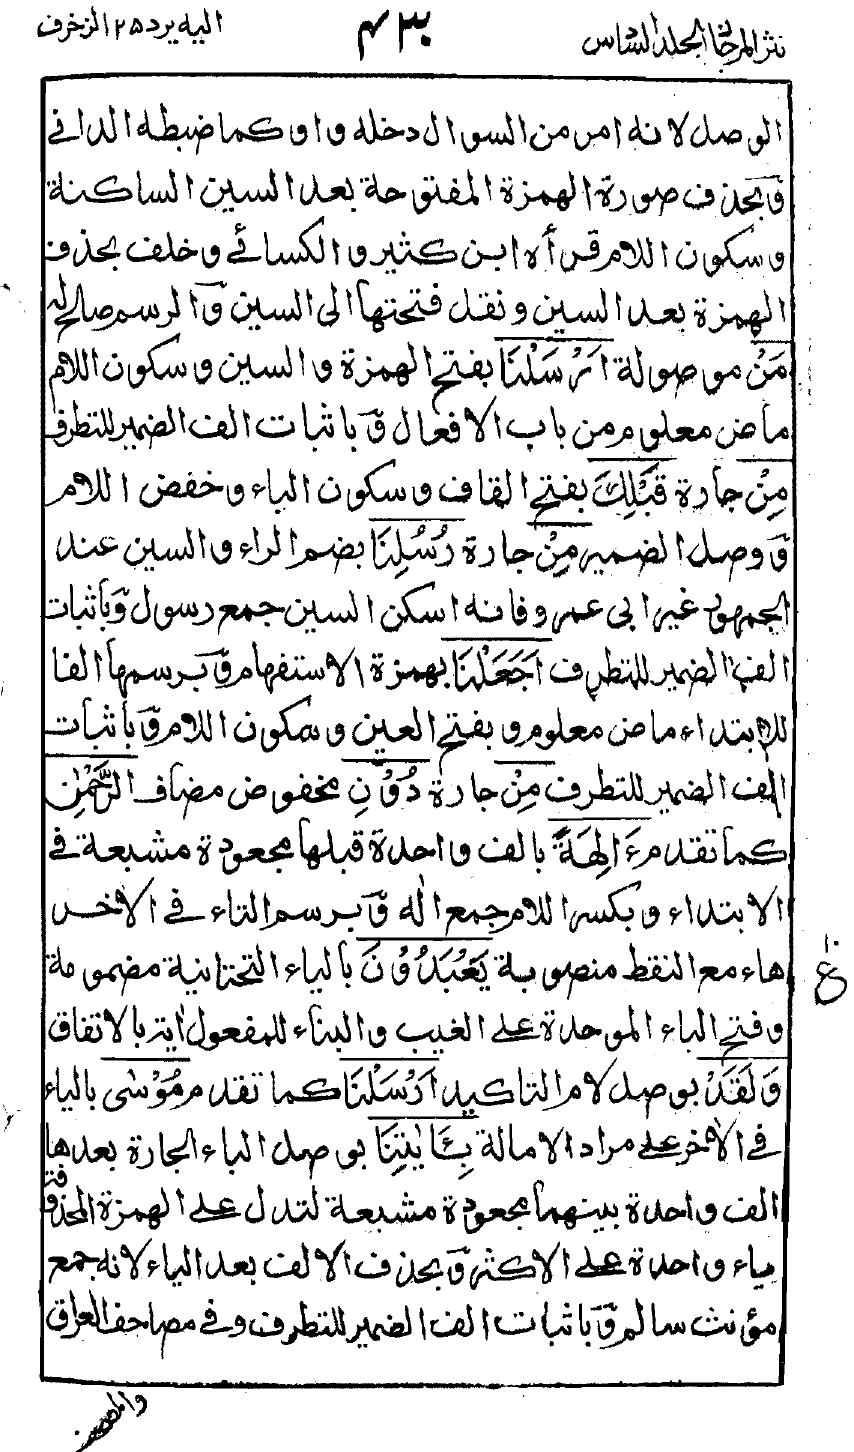 نثر المرجان المجلد السادس
٤٣٠
اليه يرد ٢٥ الزخرف
الوصل لانه امر من السوال دخله واو كما ضبطه الداني
وَبحذف صورة الهمزة المفتوحة بعد السين الساكنة
وسكون اللام قرأه ابن كثير والكسائے وخلف بحذف
الهمزة بعد السين ونقل فتحتها الى السين وَالرسم صالح له
مَنْ موصولة اَرْسَلْنَا بفتح الهمزة والسين وسكون اللام
ماض معلوم من باب الافعال وَباثبات الف الضمير للتطرف
مِنْ جارة قَبْلِكَ بفتح القاف وسكون الباء وخفض اللام
وَوصل الضمير مِنْ جارة رُسُلِنَا بضم الراء والسين عند
الجمهور غير ابى عمرو فانه اسكن السين جمع رسول وَباثبات
الف الضمير للتطرف اَجَعَلْنَا بهمزة الاستفهام وَبرسمها الفا
للابتداء ماض معلوم وبفتح العين وسكون اللام وَباثبات
الف الضمير للتطرف مِنْ جارة دُوْنِ مخفوض مضاف الرَّحْمٰنِ
كما تقدم ءَالِهَةً بالف واحدة قبلها مجعودة مشبعة في
الابتداء وبكسر اللام جمع اله وَبرسم التاء في الاخر
هاء مع النقط منصوبة يُعْبَدُوْنَ بالياء التحتانية مضمومة
وفتح الباء الموحدة على الغيب والبناء للمفعول اٰية بالاتفاق
وَلَقَدْ بوصل لام التاكيد اَرْسَلْنَا كما تقدم مُوْسٰى بالياء
في الاخر على مراد الامالة بِـَٔايٰتِنَا بوصل الباء الجارة بعدها
الف واحدة بينهما مجعودة مشبعة لتدل على الهمزة المحذوفة
وياء واحدة على الاكثر وَبحذف الالف بعد الياء لانه جمع
مؤنث سالم وَباثبات الف الضمير للتطرف وفي مصاحف العراق
١٠
ع